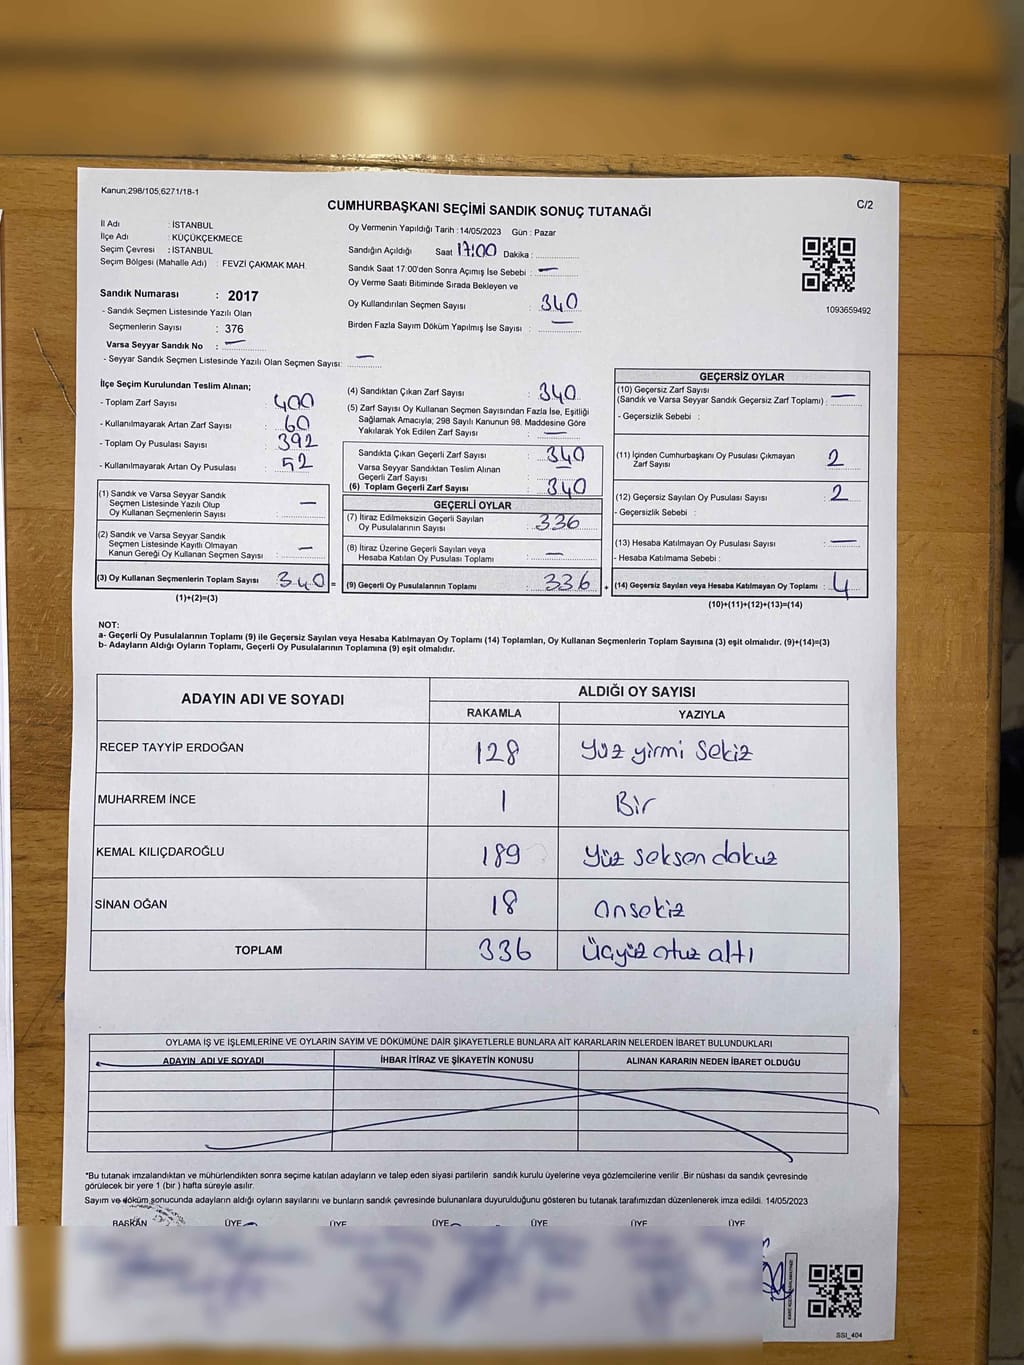 Kanun,298/105,6271/18-1
C/2
CUMHURBAŞKANI SEÇİMİ SANDIK SONUÇ TUTANAĞI
İl Adı : İSTANBUL
İlçe Adı : KÜÇÜKÇEKMECE
Seçim Çevresi : İSTANBUL
Seçim Bölgesi (Mahalle Adı) : FEVZİ ÇAKMAK MAH.
Sandık Numarası : 2017
- Sandık Seçmen Listesinde Yazılı Olan
Seçmenlerin Sayısı : 376
Varsa Seyyar Sandık No : —
- Seyyar Sandık Seçmen Listesinde Yazılı Olan Seçmen Sayısı: —
Oy Vermenin Yapıldığı Tarih : 14/05/2023 Gün : Pazar
Sandığın Açıldığı Saat 17:00 Dakika :
Sandık Saat 17:00'den Sonra Açımış İse Sebebi : —
Oy Verme Saati Bitiminde Sırada Bekleyen ve
Oy Kullandırılan Seçmen Sayısı : 340
Birden Fazla Sayım Döküm Yapılmış İse Sayısı : —
1093659492
İlçe Seçim Kurulundan Teslim Alınan;
- Toplam Zarf Sayısı : 400
- Kullanılmayarak Artan Zarf Sayısı : 60
- Toplam Oy Pusulası Sayısı : 392
- Kullanılmayarak Artan Oy Pusulası : 52
(1) Sandık ve Varsa Seyyar Sandık
Seçmen Listesinde Yazılı Olup
Oy Kullanan Seçmenlerin Sayısı : —
(2) Sandık ve Varsa Seyyar Sandık
Seçmen Listesinde Kayıtlı Olmayan
Kanun Gereği Oy Kullanan Seçmen Sayısı : —
(3) Oy Kullanan Seçmenlerin Toplam Sayısı : 340 =
(1)+(2)=(3)
(4) Sandıktan Çıkan Zarf Sayısı : 340
(5) Zarf Sayısı Oy Kullanan Seçmen Sayısından Fazla İse, Eşitliği
Sağlamak Amacıyla; 298 Sayılı Kanunun 98. Maddesine Göre
Yakılarak Yok Edilen Zarf Sayısı : —
Sandıkta Çıkan Geçerli Zarf Sayısı : 340
Varsa Seyyar Sandıktan Teslim Alınan
Geçerli Zarf Sayısı : —
(6) Toplam Geçerli Zarf Sayısı : 340
GEÇERLİ OYLAR
(7) İtiraz Edilmeksizin Geçerli Sayılan
Oy Pusulalarının Sayısı : 336
(8) İtiraz Üzerine Geçerli Sayılan veya
Hesaba Katılan Oy Pusulası Toplamı : —
(9) Geçerli Oy Pusulalarının Toplamı : 336 +
GEÇERSİZ OYLAR
(10) Geçersiz Zarf Sayısı
(Sandık ve Varsa Seyyar Sandık Geçersiz Zarf Toplamı) : —
- Geçersizlik Sebebi :
(11) İçinden Cumhurbaşkanı Oy Pusulası Çıkmayan
Zarf Sayısı : 2
(12) Geçersiz Sayılan Oy Pusulası Sayısı : 2
- Geçersizlik Sebebi :
(13) Hesaba Katılmayan Oy Pusulası Sayısı : —
- Hesaba Katılmama Sebebi :
(14) Geçersiz Sayılan veya Hesaba Katılmayan Oy Toplamı : 4
(10)+(11)+(12)+(13)=(14)
NOT:
a- Geçerli Oy Pusulalarının Toplamı (9) ile Geçersiz Sayılan veya Hesaba Katılmayan Oy Toplamı (14) Toplamları, Oy Kullanan Seçmenlerin Toplam Sayısına (3) eşit olmalıdır. (9)+(14)=(3)
b- Adayların Aldığı Oyların Toplamı, Geçerli Oy Pusulalarının Toplamına (9) eşit olmalıdır.
ADAYIN ADI VE SOYADI ALDIĞI OY SAYISI
RAKAMLA YAZIYLA
RECEP TAYYİP ERDOĞAN 128 Yüz yirmi sekiz
MUHARREM İNCE 1 Bir
KEMAL KILIÇDAROĞLU 189 Yüz seksen dokuz
SİNAN OĞAN 18 onsekiz
TOPLAM 336 Üçyüz otuz altı
OYLAMA İŞ VE İŞLEMLERİNE VE OYLARIN SAYIM VE DÖKÜMÜNE DAİR ŞİKAYETLERLE BUNLARA AİT KARARLARIN NELERDEN İBARET BULUNDUKLARI
ADAYIN ADI VE SOYADI İHBAR İTİRAZ VE ŞİKAYETİN KONUSU ALINAN KARARIN NEDEN İBARET OLDUĞU
*Bu tutanak imzalandıktan ve mühürlendikten sonra seçime katılan adayların ve talep eden siyasi partilerin sandık kurulu üyelerine veya gözlemcilerine verilir .Bir nüshası da sandık çevresinde
görülecek bir yere 1 (bir ) hafta süreyle asılır.
Sayım ve döküm sonucunda adayların aldığı oyların sayılarını ve bunların sandık çevresinde bulunanlara duyurulduğunu gösteren bu tutanak tarafımızdan düzenlenerek imza edildi. 14/05/2023
BAŞKAN ÜYE ÜYE ÜYE ÜYE ÜYE ÜYE
SSI_404